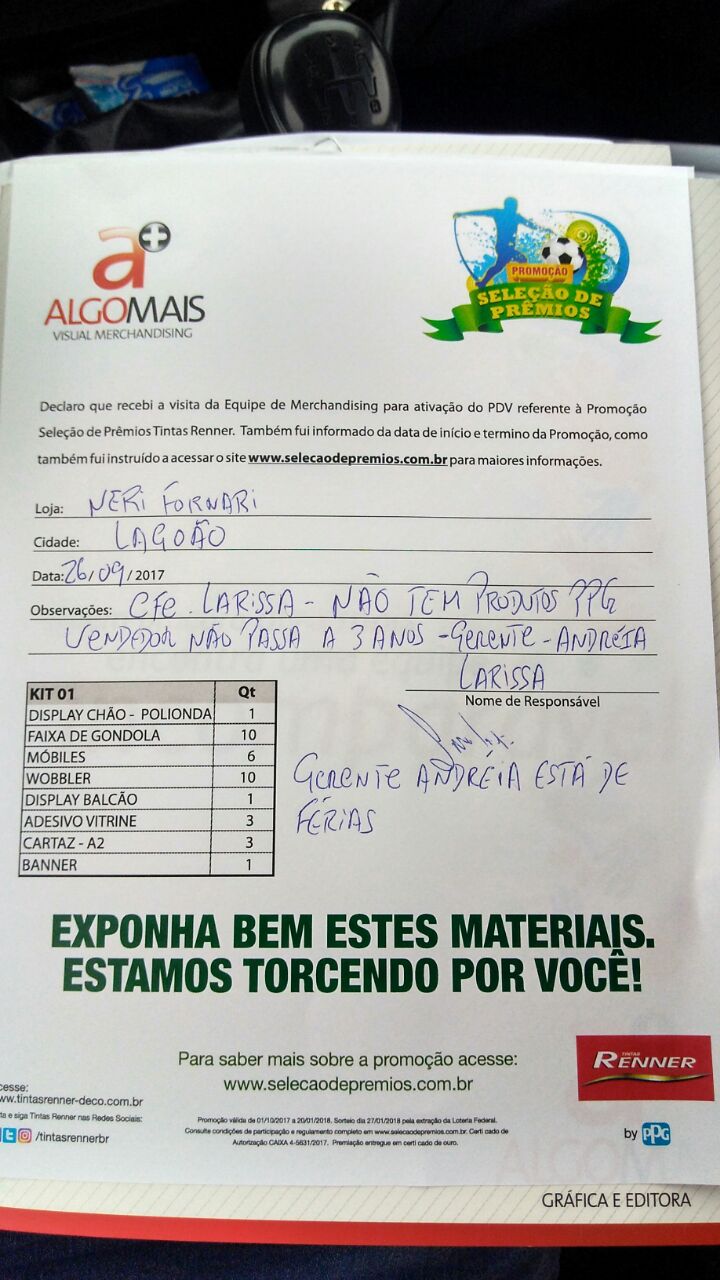 a+
ALGOMAIS
VISUAL MERCHANDISING
PROMOÇÃO
SELEÇÃO DE
PRÊMIOS
Declaro que recebi a visita da Equipe de Merchandising para ativação do PDV referente à Promoção
Seleção de Prêmios Tintas Renner. Também fui informado da data de início e termino da Promoção, como
também fui instruído a acessar o site www.selecaodepremios.com.br para maiores informações.
Loja: NERI FORNARI
Cidade: LAGOÃO
Data: 26/09/2017
Observações: CFE. LARISSA - NÃO TEM PRODUTOS PPG
VENDEDOR NÃO PASSA A 3 ANOS - GERENTE - ANDRÉIA
LARISSA
Nome de Responsável
KIT 01 Qt
DISPLAY CHÃO - POLIONDA 1
FAIXA DE GONDOLA 10
MÓBILES 6
WOBBLER 10
DISPLAY BALCÃO 1
ADESIVO VITRINE 3
CARTAZ - A2 3
BANNER 1
GERENTE ANDRÉIA ESTÁ DE
FÉRIAS
EXPONHA BEM ESTES MATERIAIS.
ESTAMOS TORCENDO POR VOCÊ!
Para saber mais sobre a promoção acesse:
www.selecaodepremios.com.br
TINTAS
RENNER
by PPG
cesse:
ww.tintasrenner-deco.com.br
ta e siga Tintas Renner nas Redes Sociais:
/tintasrennerbr
Promoção válida de 01/10/2017 a 20/01/2018. Sorteio dia 27/01/2018 pela extração da Loteria Federal.
Consulte condições de participação e regulamento completo em www.selecaodepremios.com.br. Certi cado de
Autorização CAIXA 4-5631/2017. Premiação entregue em certi cado de ouro.
GRÁFICA E EDITORA